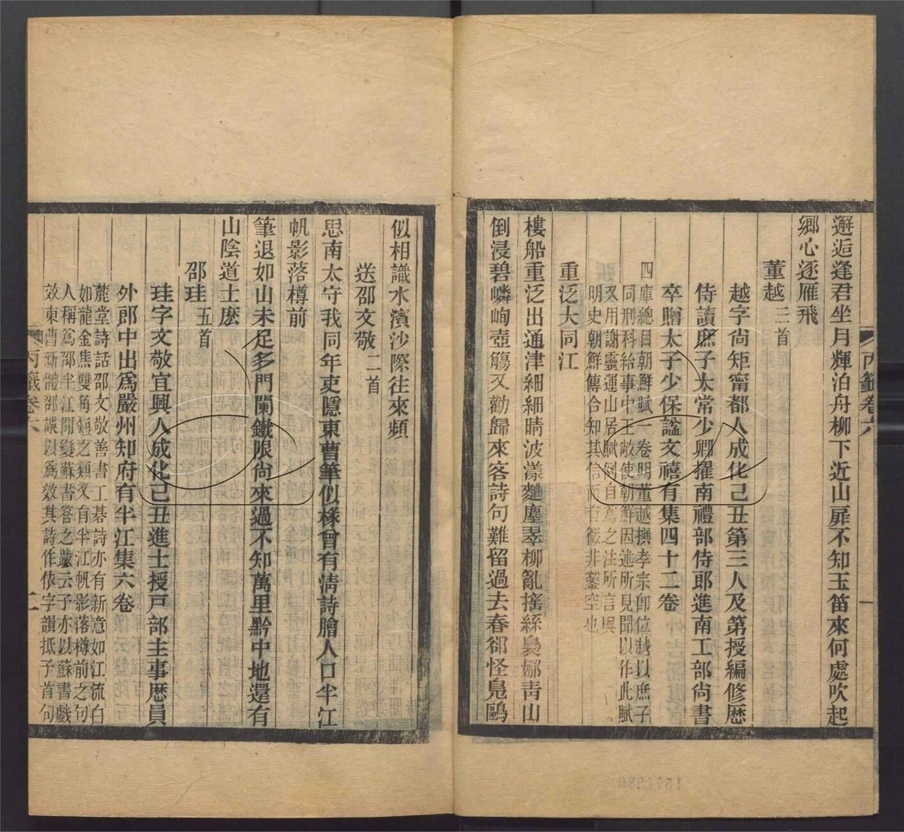 邂逅逢君坐月輝泊舟柳下近山扉不知玉笛來何處吹起
鄉心逐雁飛
董越三首
越字尚矩甯都人成化己丑第三人及第授編修歷
侍讀庶子太常少卿擢南禮部侍郎進南工部尚書
卒贈太子少保諡文禧有集四十二卷
四庫總目朝鮮賦一卷明董越撰孝宗即位越以庶子
同刑科給事中王敞使朝鮮因述所見聞以作此賦
又用謝靈運山居賦例自為之注所言與
明史朝鮮傳合知其信而有徵非鑿空也
重泛大同江
樓船重泛出通津細細晴波漾麯塵翠柳亂搖絲裊娜青山
倒浸碧嶙峋壺觴又勸歸來客詩句難留過去春卻怪鳧鷗
丙籤卷六
一
似相識水濱沙際往來頻
送邵文敬二首
思南太守我同年吏隱東曹筆似椽曾有淸詩膾人口半江
帆影落樽前
筆退如山未足多門闌鐵限尙來過不知萬里黔中地還有
山陰道士麽
邵珪五首
珪字文敬宜興人成化己丑進士授戸部主事歷員
外郎中出爲嚴州知府有半江集六卷
麓堂詩話邵文敬善書工碁詩亦有新意如江流白
如龍金焦雙角短之類又有半江帆影落樽前之句
人稱爲邵半江閒變蘇書答之云予亦以蘇書戲
效東曹新體邵誤以爲效其詩作依字韻抵予首句
丙籤卷六
二